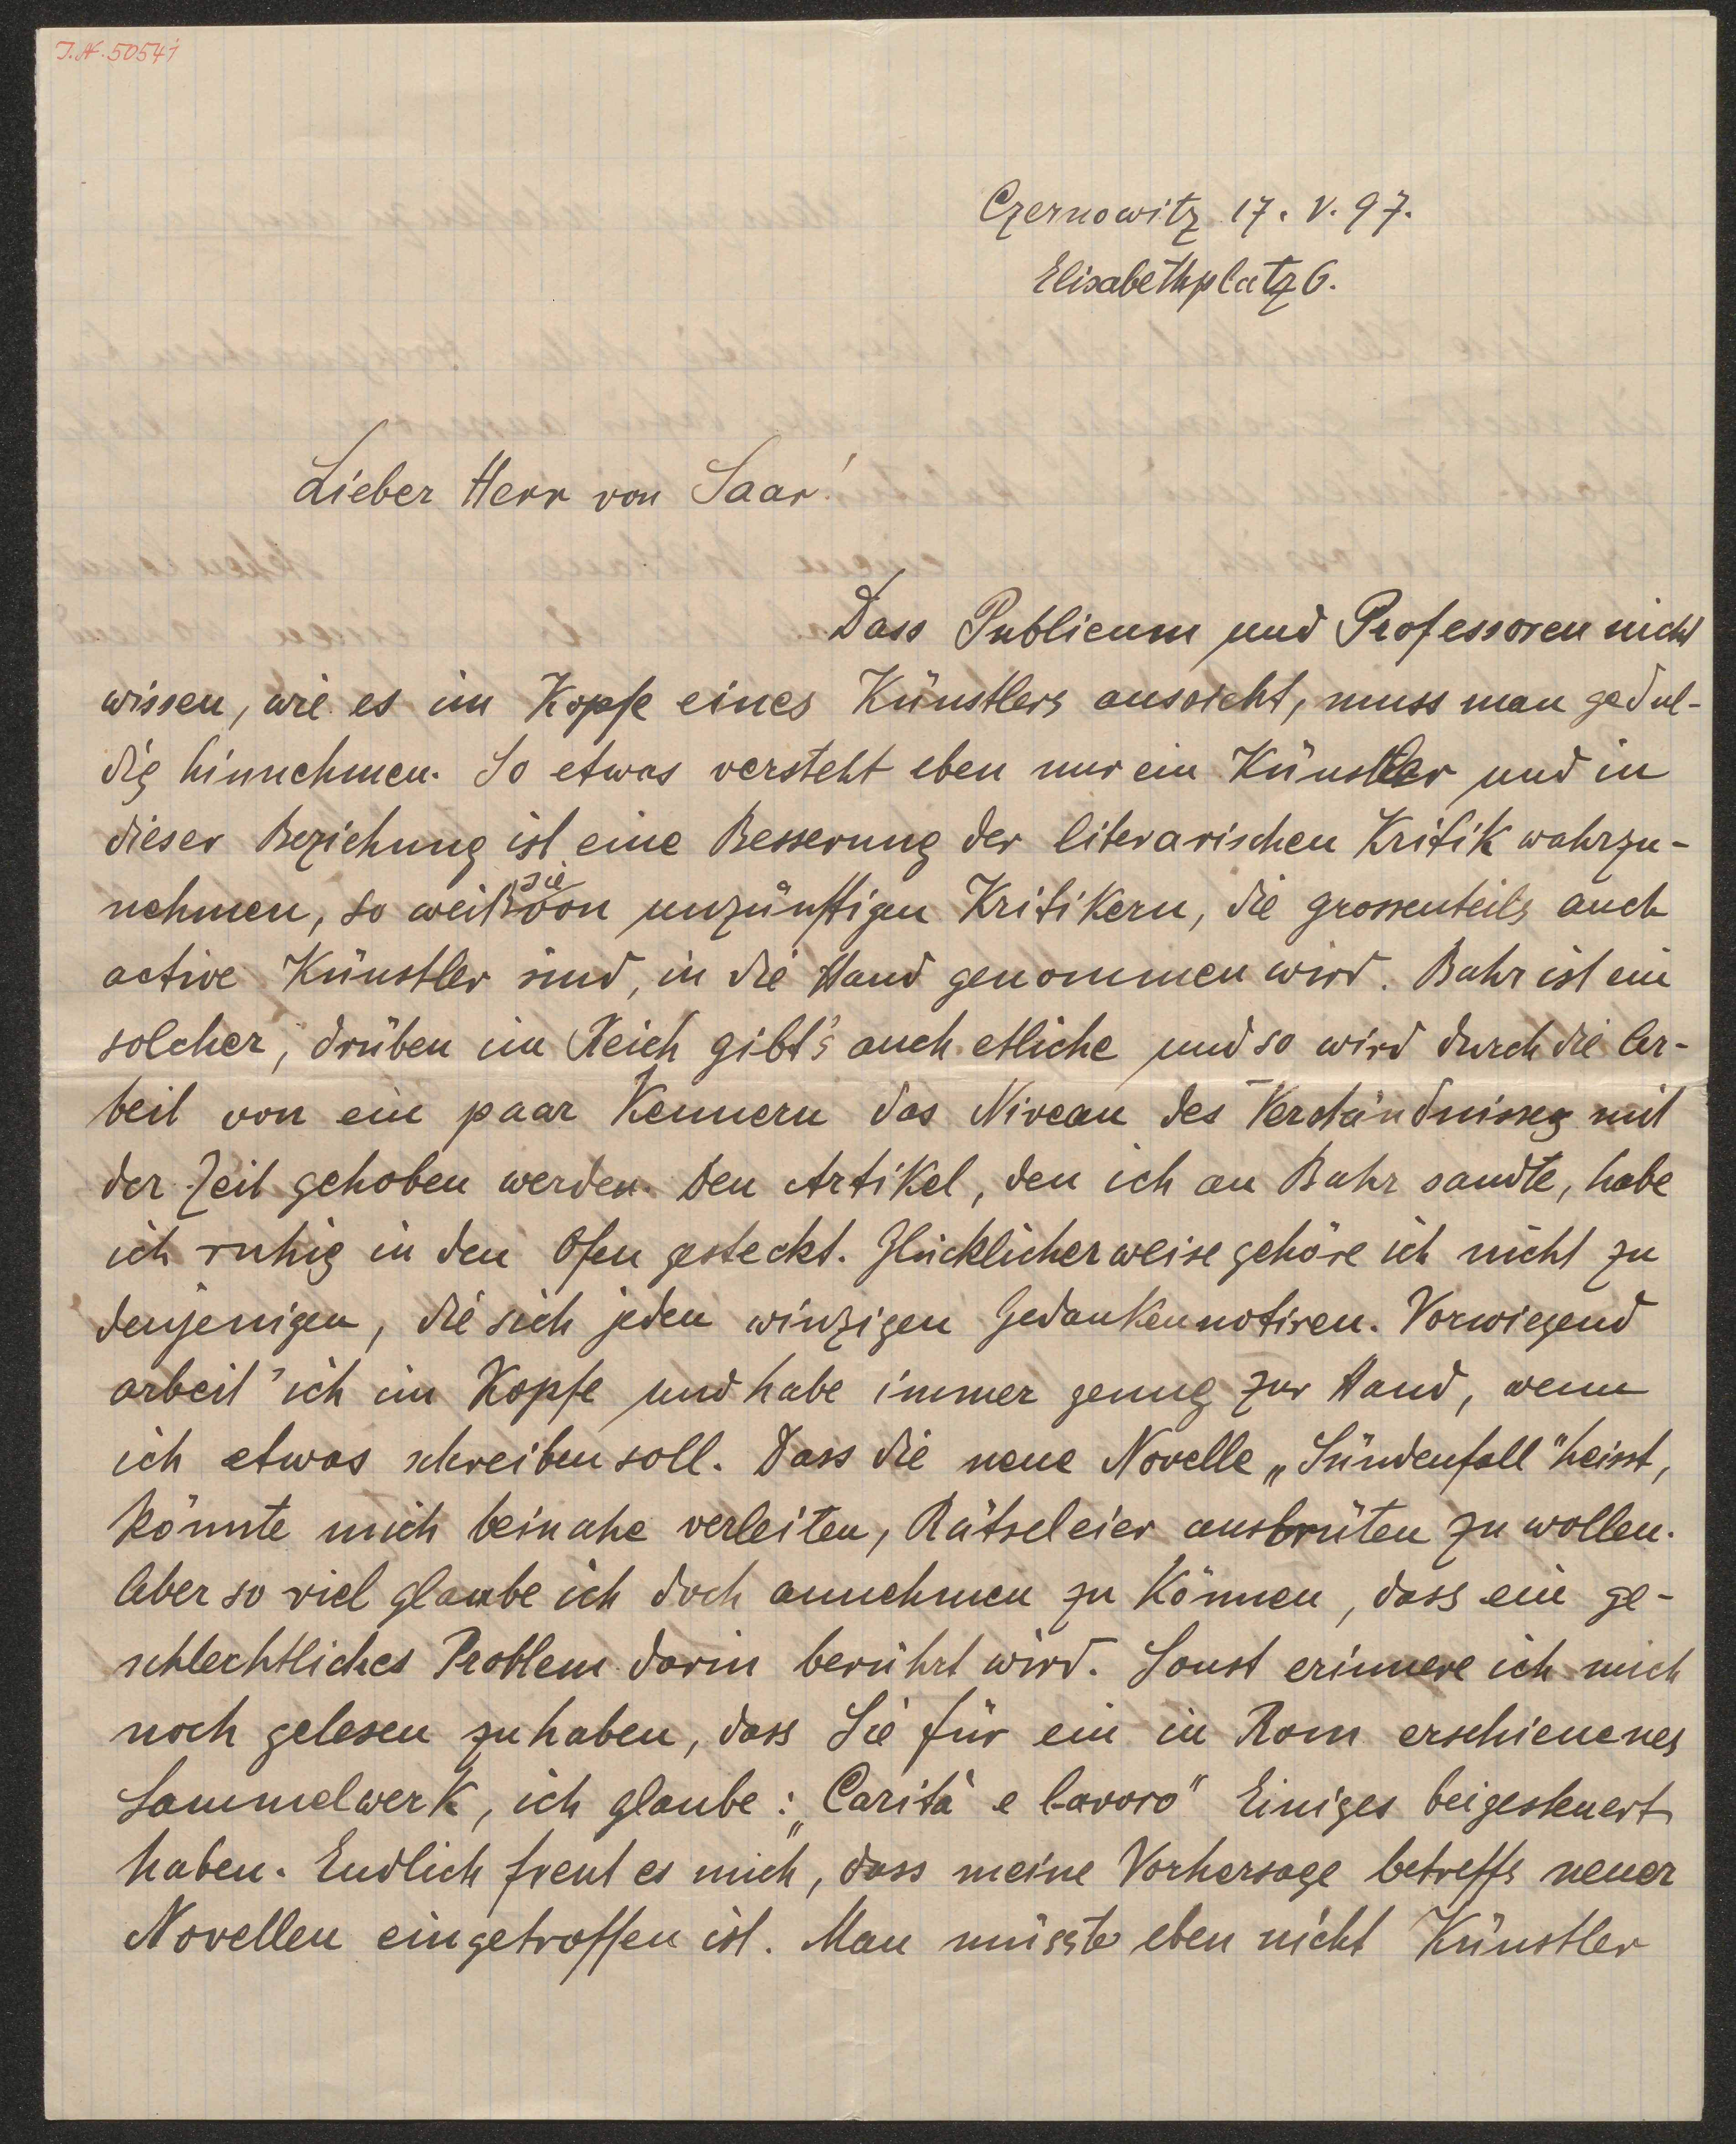 I.N. 50541
Czernowitz 17. V. 97.
Elisabethplatz 6.
Lieber Herr von Saar!
Dass Publicum und Professoren nicht
wissen, wie es im Kopfe eines Künstlers aussieht, muss man gedul-
dig hinnehmen. So etwas versteht eben nur ein Künstler und in
dieser Beziehung ist eine Besserung der literarischen Kritik wahrzu-
nehmen, so weit sie von unzünftigen Kritikern, die grossenteils auch
active Künstler sind, in die Hand genommen wird. Bahr ist ein
solcher, drüben im Reich gibt's auch etliche und so wird durch die Ar-
beit von ein paar Kennern das Niveau des Verständnisses mit
der Zeit gehoben werden. Den Artikel, den ich an Bahr sandte, habe
ich ruhig in den Ofen gesteckt. Glücklicherweise gehöre ich nicht zu
denjenigen, die sich jeden winzigen Gedanken notiren. Vorwiegend
arbeit' ich im Kopfe und habe immer genug zur Hand, wenn
ich etwas schreiben soll. Dass die neue Novelle „Sündenfall" heisst,
könnte mich beinahe verleiten, Rätseleier ausbrüten zu wollen.
Aber so viel glaube ich doch annehmen zu können, dass ein ge-
schlechtliches Problem darin berührt wird. Sonst erinnere ich mich
noch gelesen zu haben, dass Sie für ein in Rom erschienenes
Sammelwerk, ich glaube: „Carità e lavoro" Einiges beigesteuert
haben. Endlich freut es mich, dass meine Vorhersage betreffs neuer
Novellen eingetroffen ist. Man müsste eben nicht Künstler